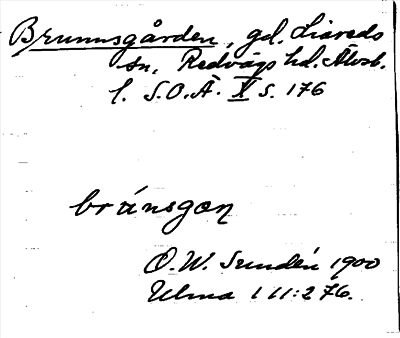 Brunnsgården, gd. Liareds
sn, Redvägs hd. Älvsb.
l. S.O.Ä. X s. 176
bränsgon
O. W. Sundén 1900
Ulma 111:276.